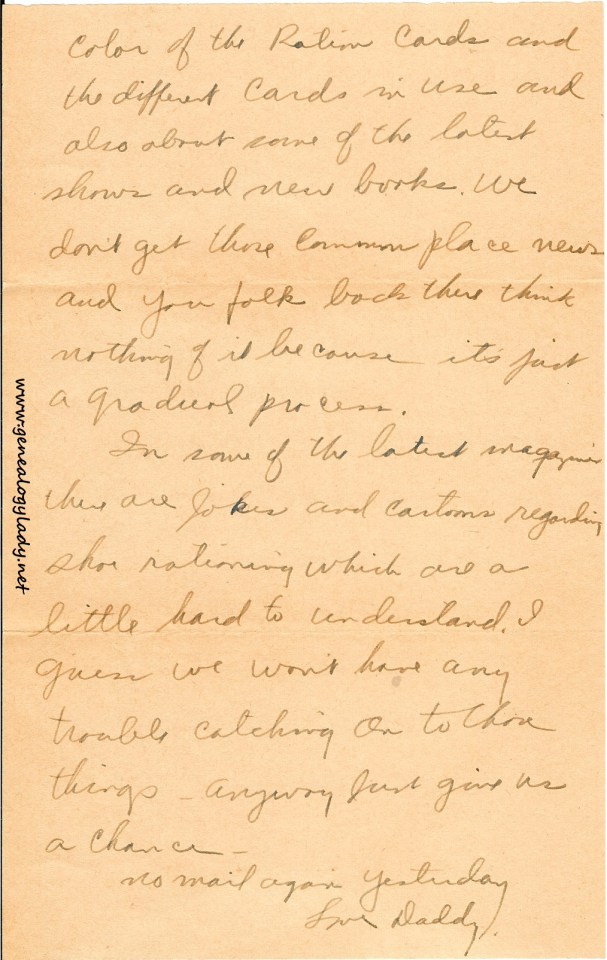 color of the Ration Cards and
the different Cards in use and
also about some of the latest
shows and new books. We
don't get those common place news
and you folk back there think
nothing of it because it's just
a gradual process.
In some of the latest magazines
there are jokes and cartoons regarding
shoe rationing which are a
little hard to understand. I
guess we won't have any
trouble catching on to those
things - anyway just give us
a chance -
no mail again yesterday
Love Daddy.
www.genealogylady.net